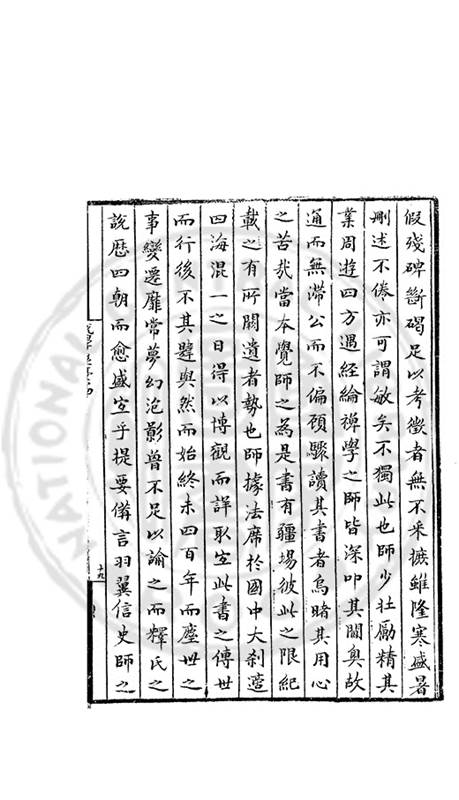 假殘碑斷碣足以考徵者無不采摭雖隆寒盛暑
刪述不倦亦可謂敏矣不獨此也師少壯勵精其
業周遊四方遇經綸禪學之師皆深叩其閫奧故
通而無滯公而不偏頃驟讀其書者烏睹其用心
之苦哉當本覺師之為是書有疆場彼此之限紀
載之有所闕遺者勢也師據法席於國中大剎葢
四海混一之日得以博觀而詳取宜此書之傳世
而行後不其韙與然而始終未四百年而塵世之
事變遷靡常夢幻泡影曾不足以諭之而釋氏之
說歷四朝而愈盛宜乎提要備言羽翼信史師之
十九
NATIONAL